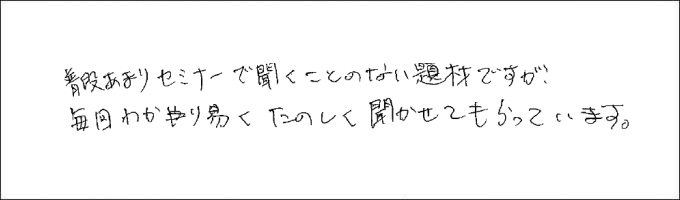 普段あまりセミナーで聞くことのない題材ですが、
毎回わかり易くたのしく聞かせてもらっています。